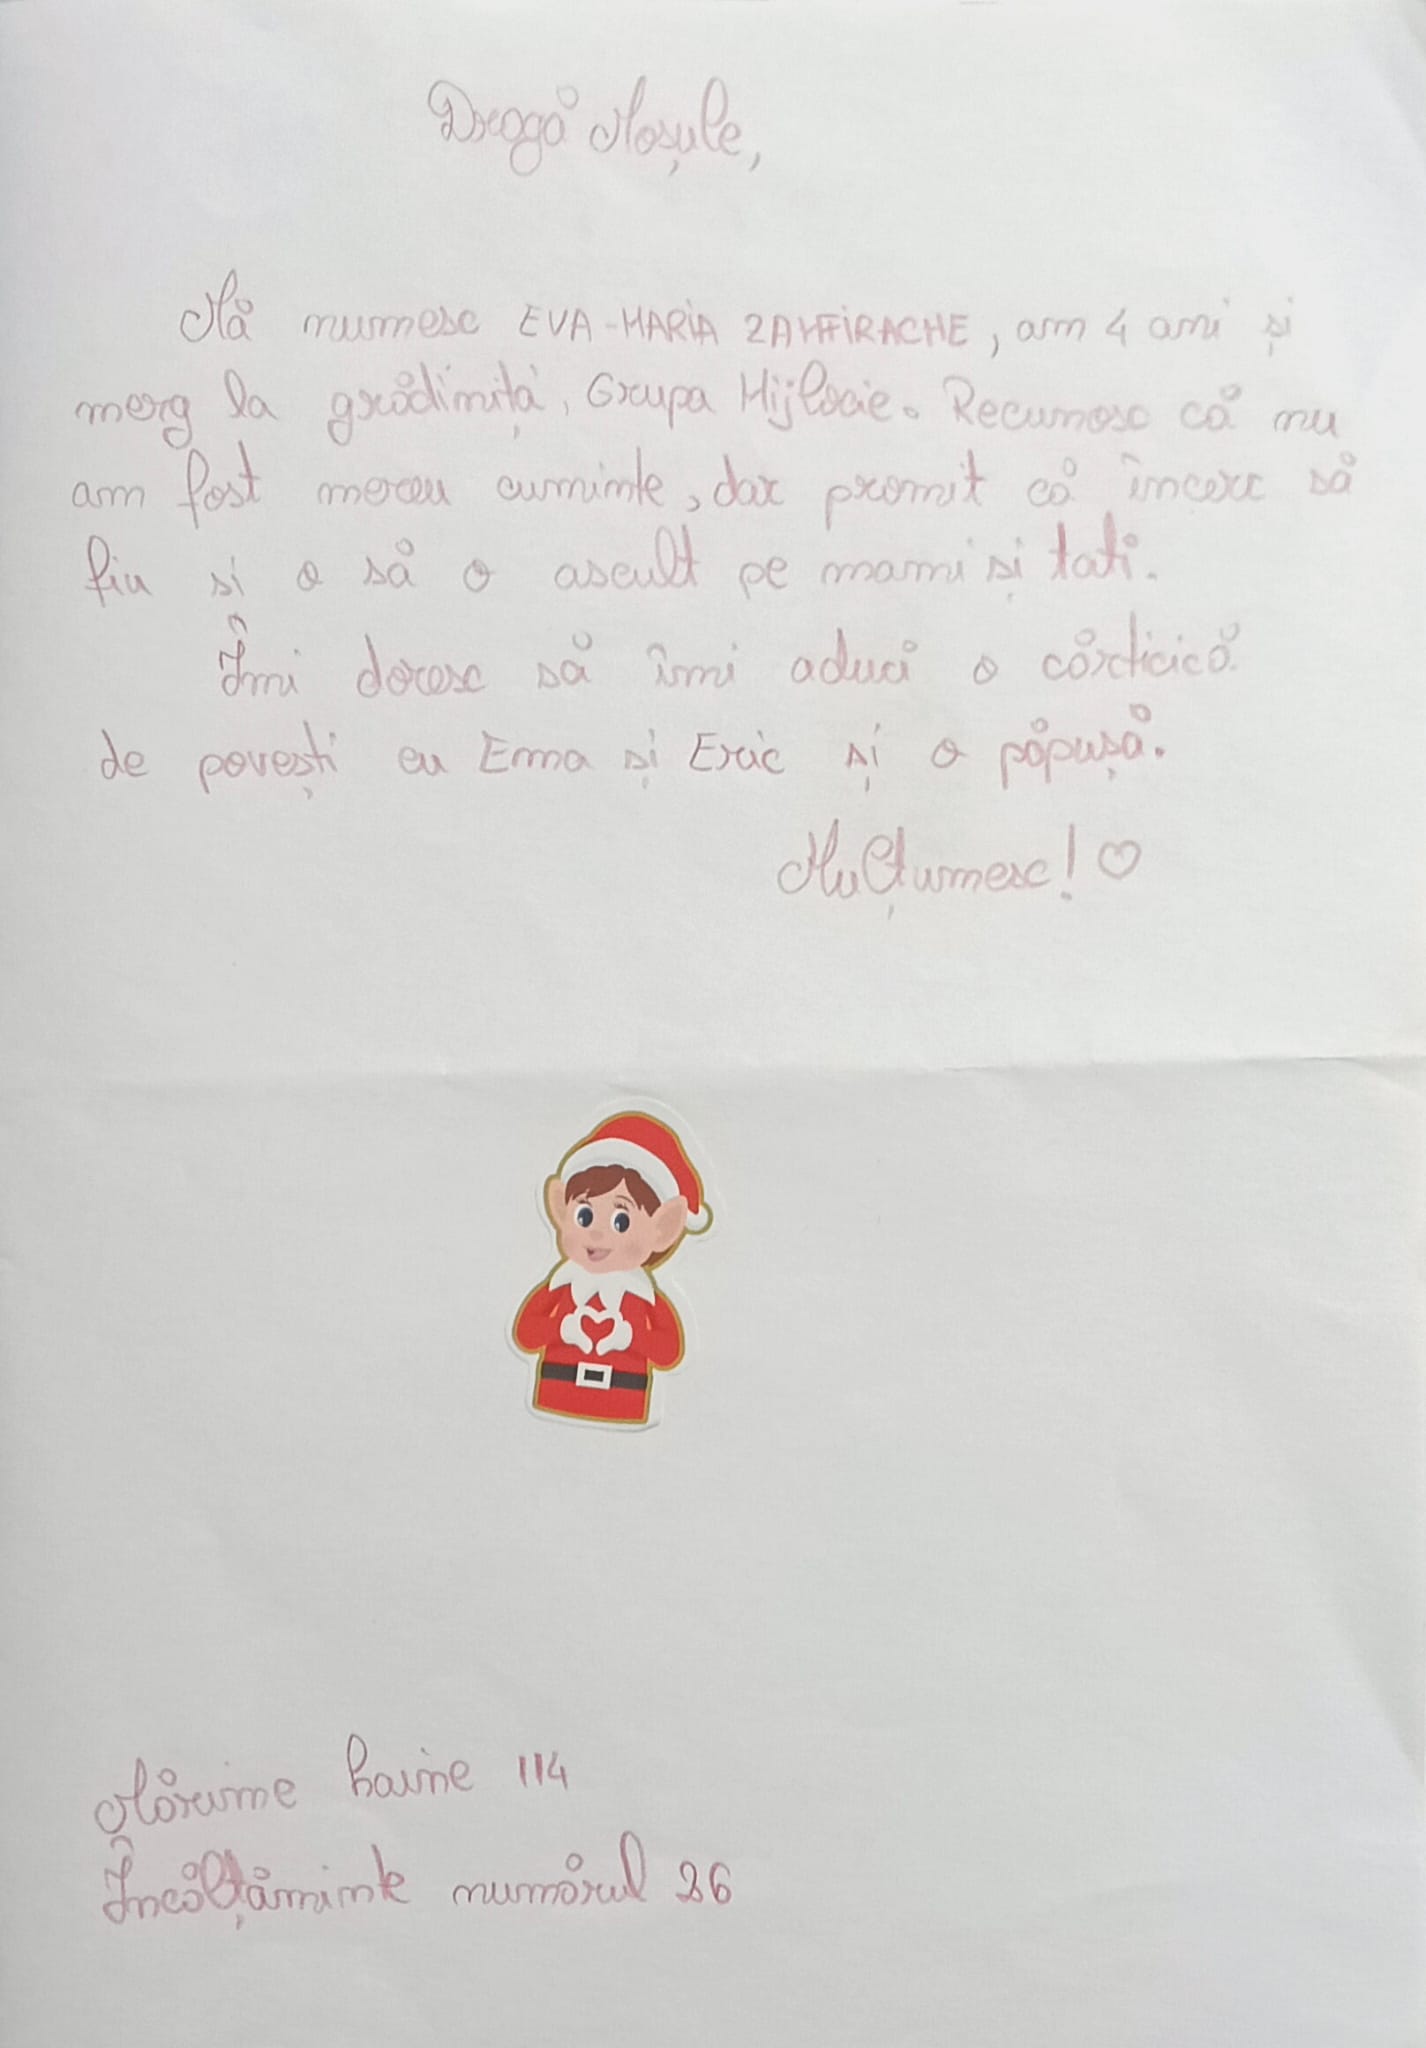 Dragă Moșule,
Mă numesc EVA-MARIA ZAMFIRACHE, am 4 ani și
merg la grădiniță, Grupa Mijlocie. Recunosc că nu
am fost mereu cuminte, dar promit că încerc să
fiu și o să o ascult pe mami și tati.
Îmi doresc să îmi aduci o cărticică
de povești cu Ema și Eric și o păpușă.
Mulțumesc! ♡
Mărime haine 114
Încălțăminte numărul 26